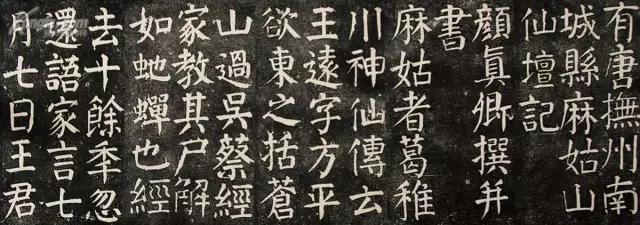 有唐撫州南
城縣麻姑山
仙壇記
顏眞卿撰并
書
麻姑者葛稚
川神仙傳云
王遠字方平
欲東之括蒼
山過吳蔡經
家教其尸解
如虵蟬也經
去十餘秊忽
還語家言七
月七日王君